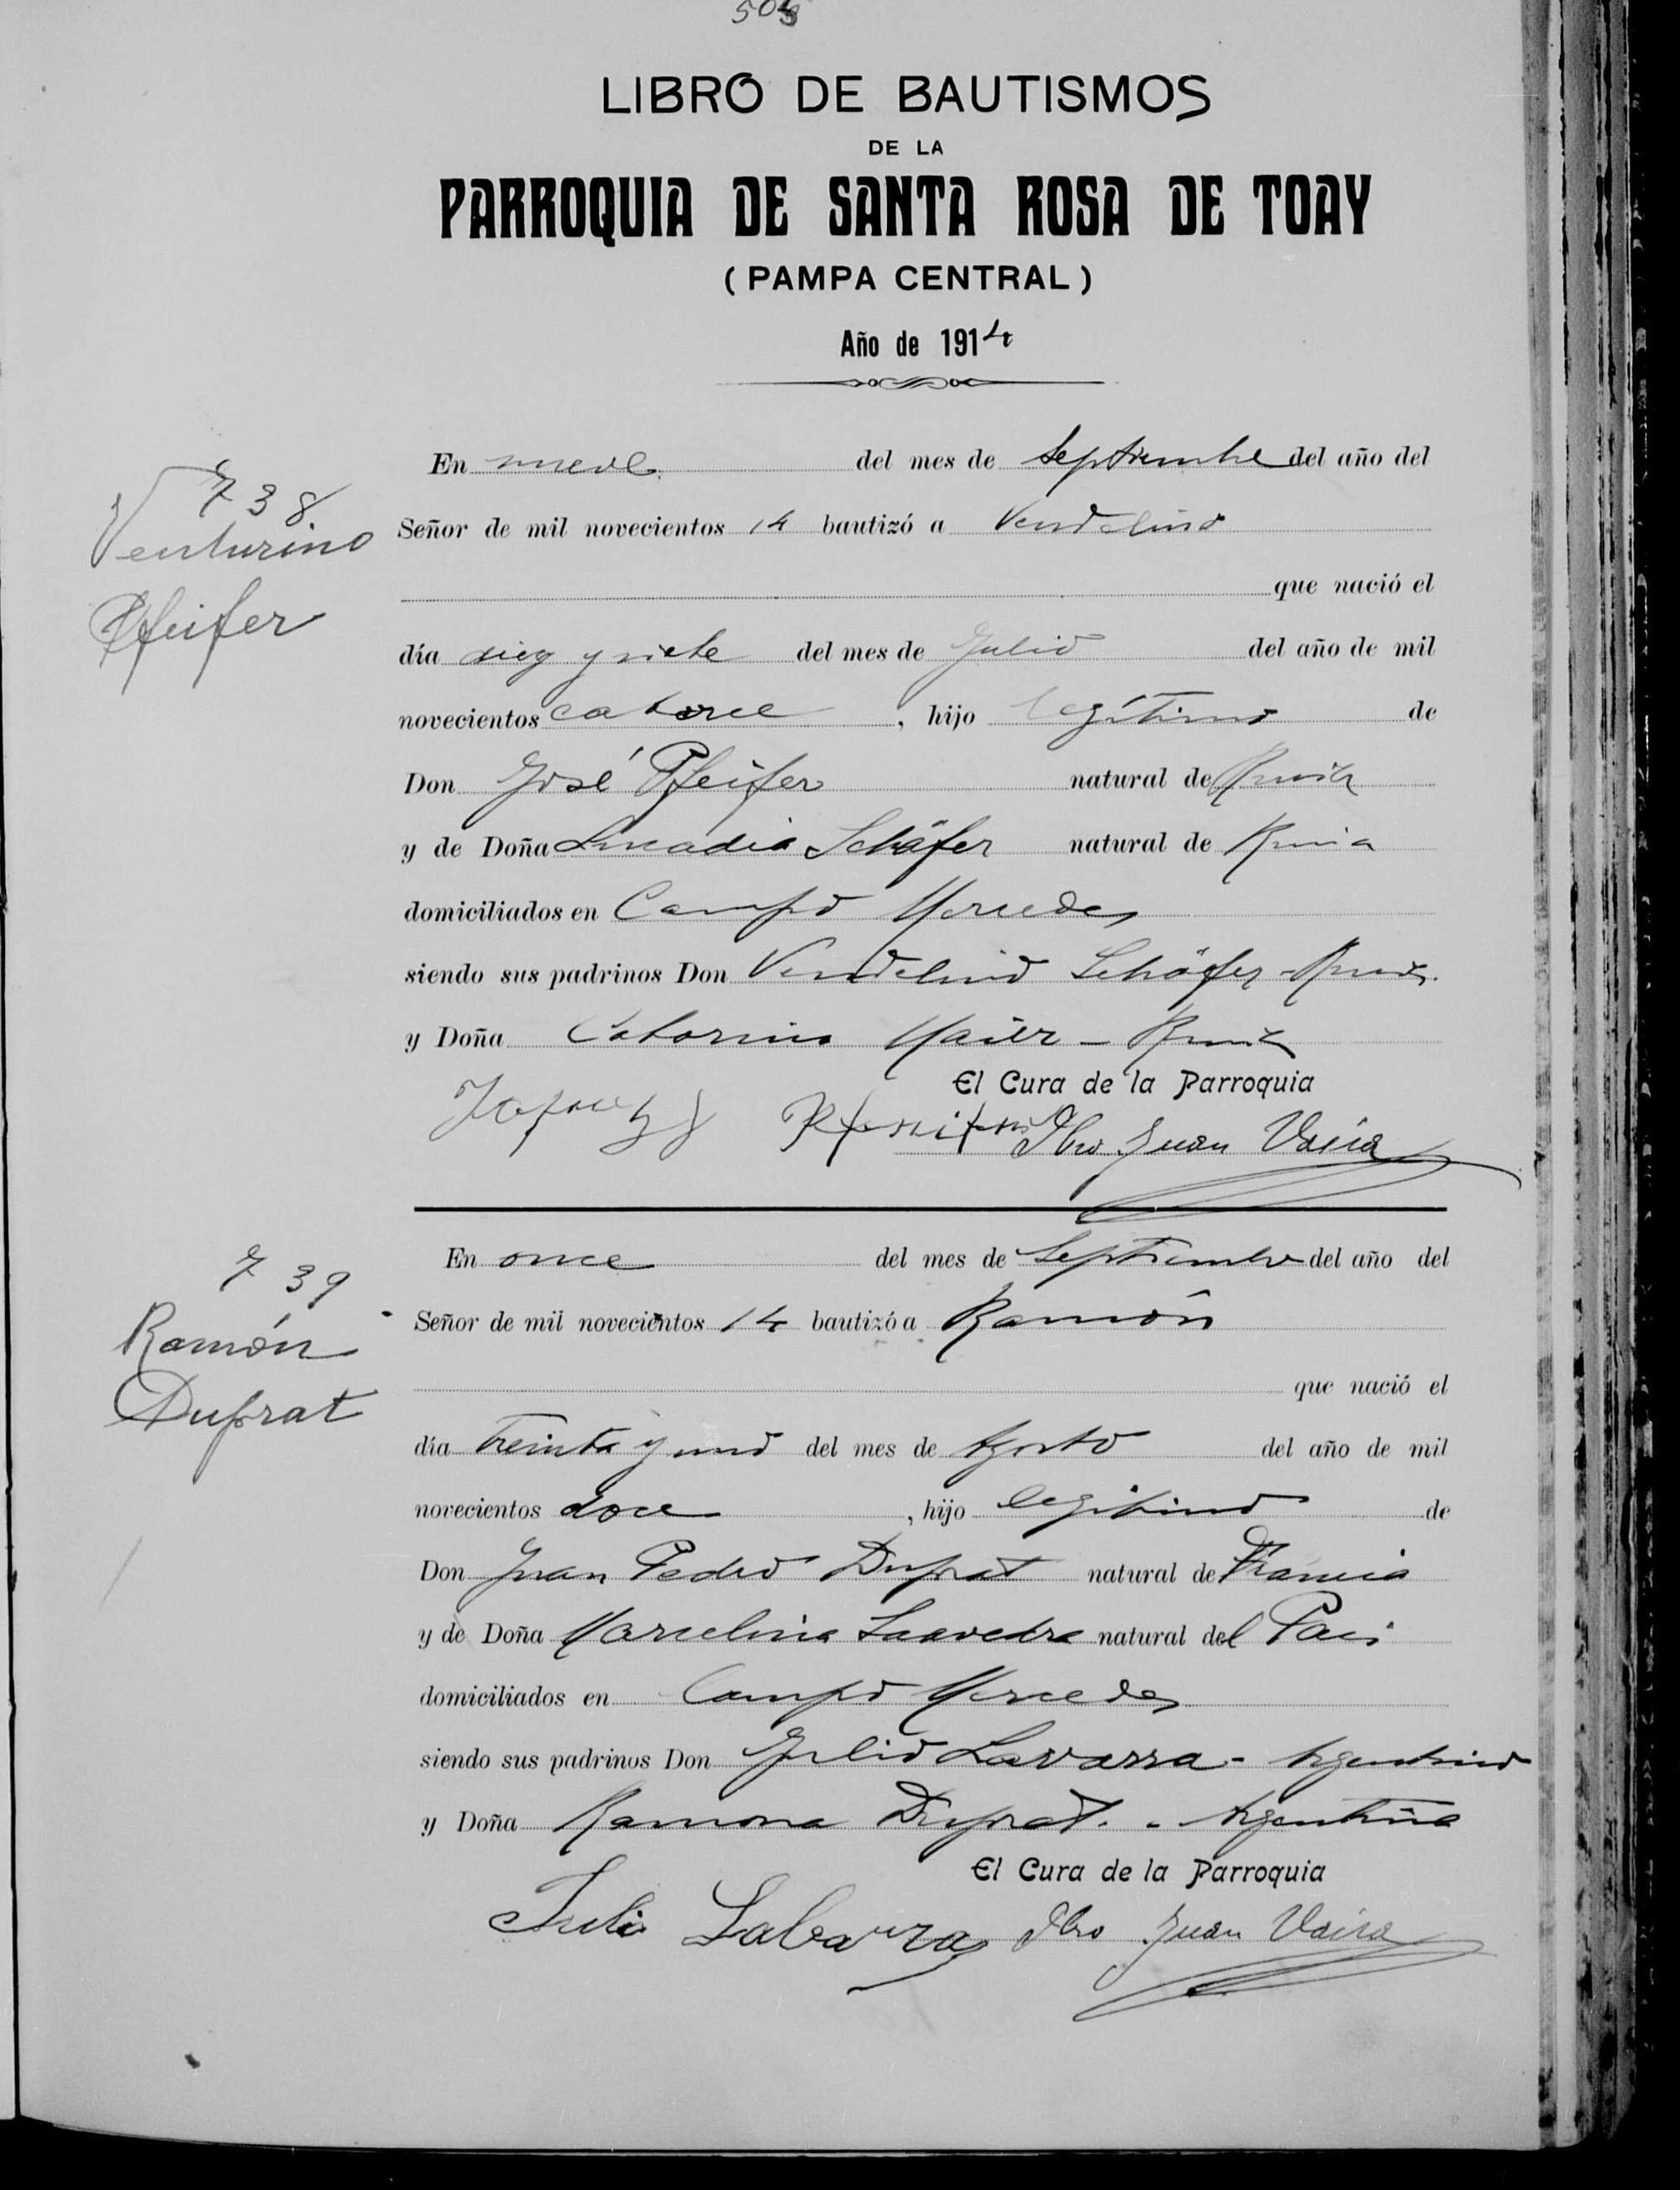 LIBRO DE BAUTISMOS
DE LA
PARROQUIA DE SANTA ROSA DE TOAY
(PAMPA CENTRAL)
Año de 1914
738
Venturino
Pfeifer
En nueve del mes de Septiembre del año del
Señor de mil novecientos 14 bautizó a Vendelino
que nació el
día diez y siete del mes de Julio del año de mil
novecientos catorce, hijo legítimo de
Don José Pfeifer natural de Rusia
y de Doña Schäfer natural de Rusia
domiciliados en Campo Mercedes
siendo sus padrinos Don Vendelino Schäfer - Rusia
y Doña Catarina Maier - Rusia
El Cura de la Parroquia
Pbro Juan Vaira
739
Ramón
Duprat
En once del mes de Septiembre del año del
Señor de mil novecientos 14 bautizó a Ramón
que nació el
día treinta y uno del mes de Agosto del año de mil
novecientos doce, hijo legitimo de
Don Juan Pedro Duprat natural de Francia
y de Doña Marcelina Saavedra natural del Pais
domiciliados en Campo Mercedes
siendo sus padrinos Don Julio Lavarra - Argentino
y Doña Ramona Duprat. - Argentina
El Cura de la Parroquia
Julio Labarra Pbro Juan Vaira